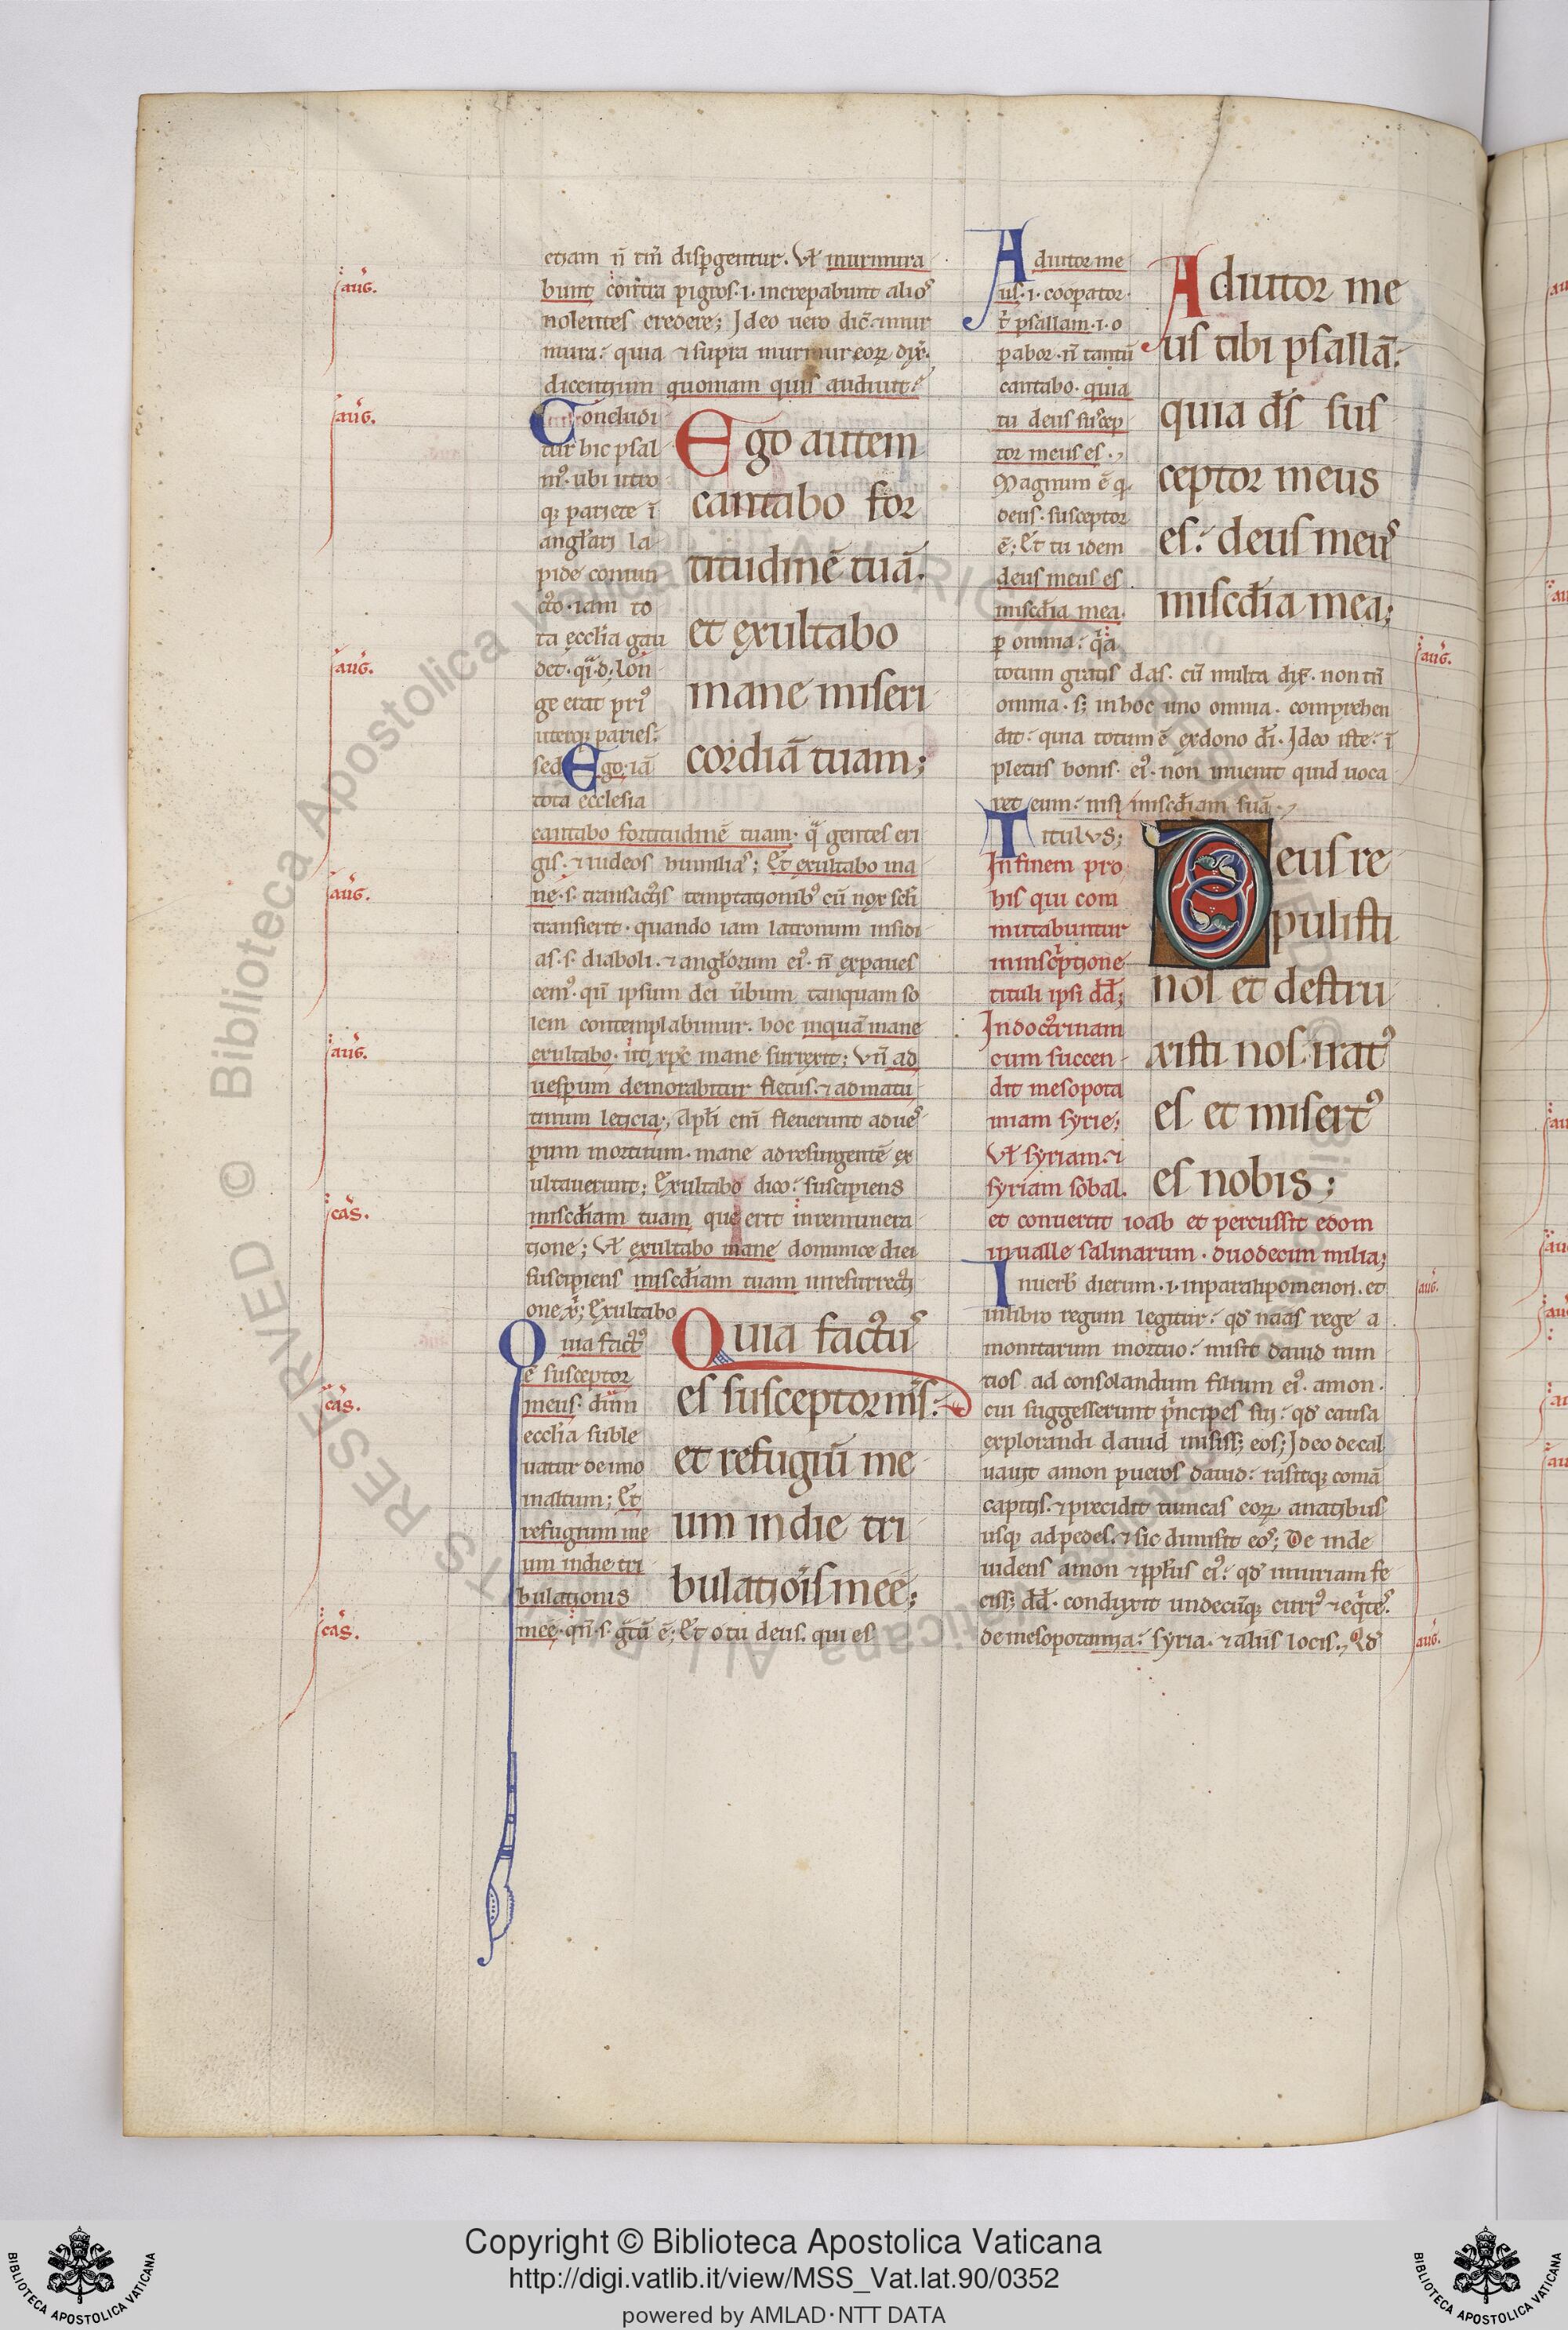 etiam ñ tm̃ disp̱gentur. Vł murmura
bunt cont̃ra pigros ·i· increpabunt alioꝰ
nolentes credere; Ideo uero dic̃ murmura
mura: quia ⁊ supra murmur eoꝝ dix̃.
dicentium quoniam quis audiuit:
aug̃.
aug̃.
aug̃.
aug̃.
aug̃.
cas̃.
cas̃.
cas̃.
Concludi
tur hic psal
mꝰ. ubi utro
qꝫ pariete ĩ
angłari la
pide coniun
cto. iam to
ta eccłia gau
det. 
ge erat priꝰ
uterqꝫ paries:
sed Ego iã
tota ecclesia
Ego autem
cantabo for
titudinẽ tuã.
et exultabo
mane miseri
cordiã tuam;
cantabo fortitudinẽ tuam. q̃ gentes eri
gis. ⁊ iudeos humilias; Et exultabo ma
ne. s. transactis temptationibꝰ cũ nox scłi
transierit. quando iam latronum insidi
as. s. diaboli. ⁊ angłorum eiꝰ. ñ expaues
cemꝰ. qñ ipsum dei ũbum tanquam so
lem contemplabimur. hoc inquã mane
exultabo. xp̃c mane surrexit; Vñ ad
uesp̱um demorabitur fletus. ⁊ ad matu
tinum leticia; Apłi em̃ fleuerunt ad ues
p̱um mortuum. mane ad resurgentẽ ex
ultauerunt; Exultabo dico: suscipiens
miscd̃iam tuam que erit in remunera
tione; Vł exultabo mane dominice diei
suscipiens miscd̃iam tuam in resurrecti
one x̃; Exultabo
Quia factꝰ
ẽ susceptor
meus. dum
eccłia suble
uatur de imo
in altum; Et
refugium me
um in die tri
bulationis
Quia factuꝰ
es susceptor m̃s:
et refugiũ me
um in die tri
bulatiõis meę;
meę. qñ. s. g̃tũ ẽ; Et o tu deus. qui es
Adiutor me
us. i. cooperator.
t̃ psallam. i. o
p̱abor. ñ tantũ
cantabo. quia
tu deus suscep
tor meus es.
Magnum ẽ q̃
deus. susceptor
ẽ; Et tu idem
deus meus es
miscd̃ia mea.
p̱ omnia: q̃a
Adiutor me
us tibi psallã:
quia d̃s sus
ceptor meus
es: deus meuꝰ
miscd̃ia mea;
aug̃.
totum gratis das. cũ multa dix̃. non tñ
omnia. sꝫ in hoc uno omnia. comprehen
dit: quia totum ẽ ex dono d̃i. Ideo iste. ĩ
pletus bonis. eiꝰ. non inuenit quid uoca
ret eum: nisi miscd̃iam suã.
Titulus;
In finem pro
his qui com
mutabuntur
in inscriptione
tituli ipsi dd̃;
In doctrinam
cum succen
dit mesopota
miam syrie;
Vł syriam. ⁊
syriam sobal.
Deus re
pulisti
nos et destru
xisti nos. iratꝰ
es et misertꝰ
es nobis;
et conuertit ioab et percussit edom
in ualle salinarum. duodecim milia;
aug̃.
In uerb̃ dierum. i. in paralipomenon. et
in libro regum legitur: qđ naas rege a
monitarum mortuo: misit dauid nun
tios ad consolandum filium eiꝰ. amon.
cui suggesserunt principes sui: qđ causa
explorandi dauid misissꝫ eos; Ideo decal
uauit amon pueros dauid: rasitqꝫ comã
capitis. ⁊ precidit tunicas eoꝝ a natibus
usqꝫ ad pedes. ⁊ sic dimisit eoꝰ; De inde
uidens amon ⁊ ppłus eiꝰ: qđ iniuriam fe
cissꝫ dd̃. conduxit undecũqꝫ currꝰ ⁊ eq̃tes.
de mesopotamia: syria. ⁊ aliis locis. Qđ
aug̃.
Copyright © Biblioteca Apostolica Vaticana
http://digi.vatlib.it/view/MSS_Vat.lat.90/0352
powered by AMLAD·NTT DATA
BIBLIOTECA APOSTOLICA VATICANA
BIBLIOTECA APOSTOLICA VATICANA